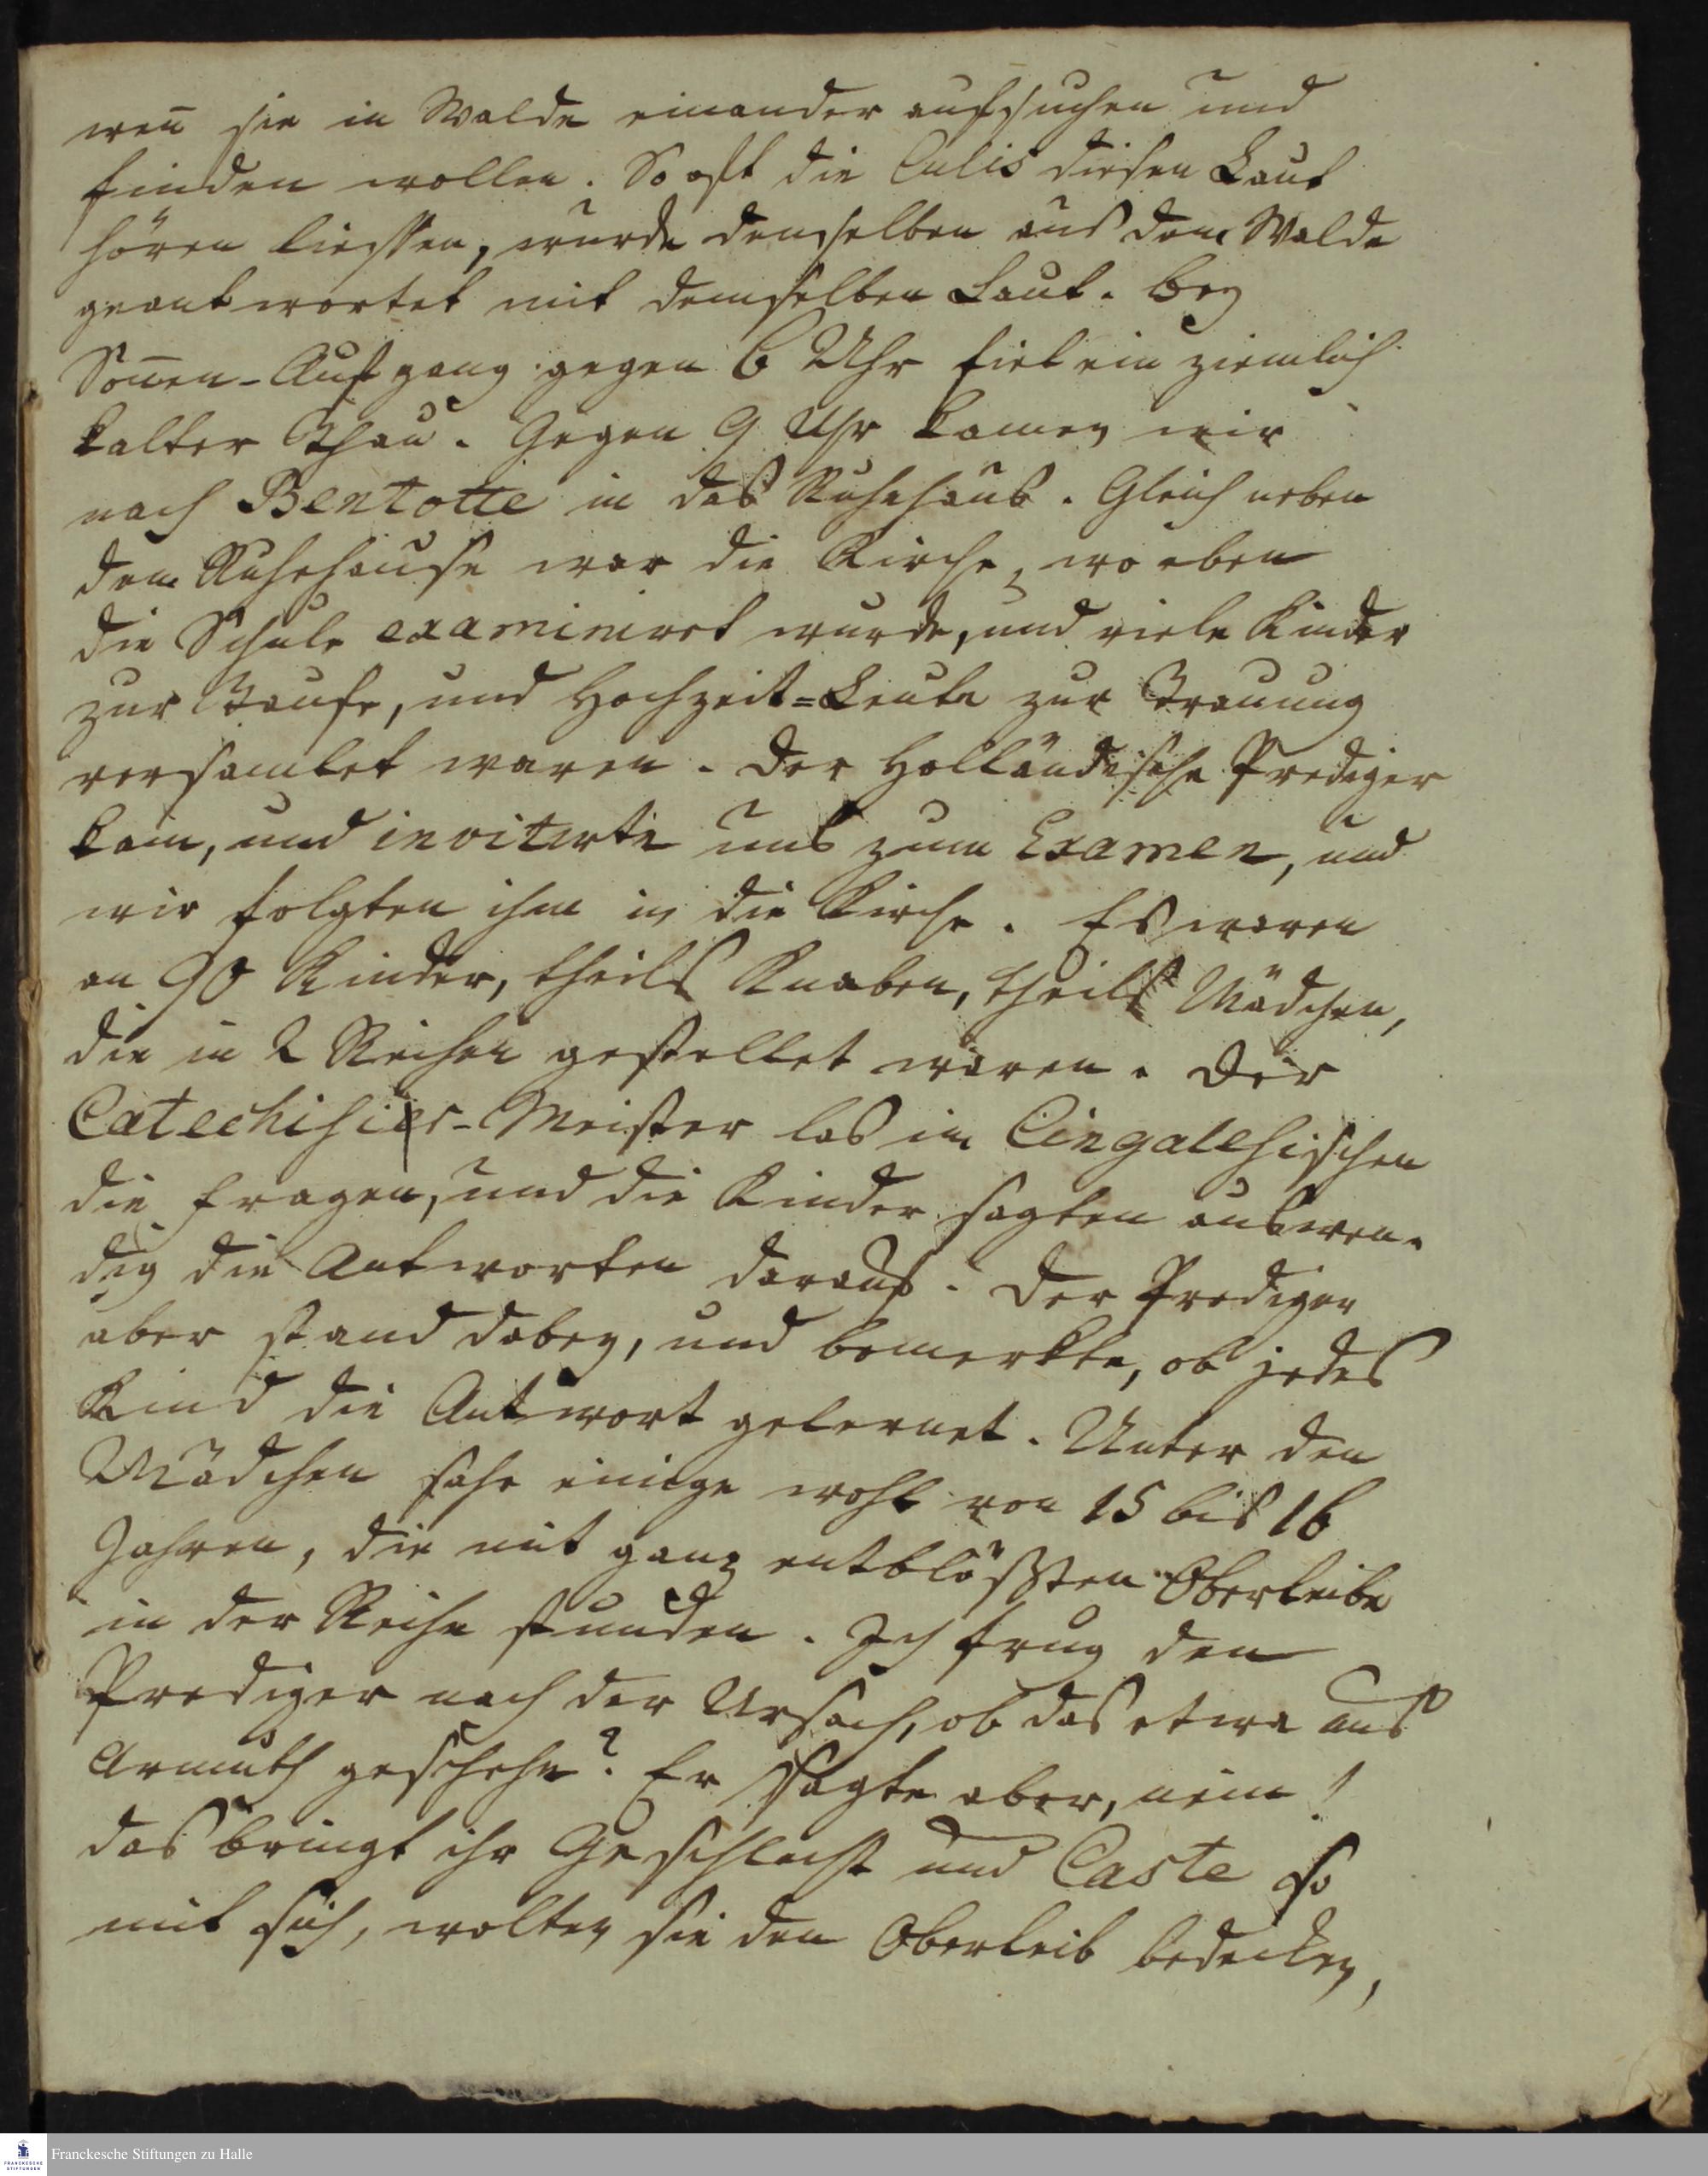 wen̄ sie in Walde einander aufsuchen und
finden wollen. So oft die Culis diesen Laut
hören liessen, wurde denselben aus dem Walde
geantwortet mit demselben Laut. Bey
Son̄en-Aufgang gegen 6 Uhr fiel ein ziemlich
kalter Thau. Gegen 9 Uhr kamen wir
nach Bentotte in das Ruhehaus. Gleich neben
dem Ruhehause war die Kirche, wo eben
die Schule examinirt wurde, und viele Kinder
zur Taufe, und Hochzeit=Leute zur Trauung
versamlet waren. Der Holländische Prediger
kam, und invitirte uns zum Examen, und
wir folgten ihm in die Kirche. Es waren
an 90 Kinder, theils Knaben, theils Mädchen,
die in 2 Reihen gestellet waren. Der
Catechisier-Meister las im Cingalesischen
die Fragen, und die Kinder sagten auswen-
dig die Antworten darauf. Der Prediger
aber stand dabey, und bemerkte, ob jedes
Kind die Antwort gelernet. Unter den
Mädchen sahe einige wohl von 15 bis 16
Jahren, die mit ganz entblößten Oberleibe
in der Reihe stunden. Ich frug den
Prediger nach der Ursach, ob das etwa aus
Armuth geschehe? Er sagte aber, nein!
das bringt ihr Geschlecht und Caste so
mit sich, wolten sie den Oberleib bedecken,
Franckesche Stiftungen zu Halle
FRANCKESCHE
STIFTUNGEN